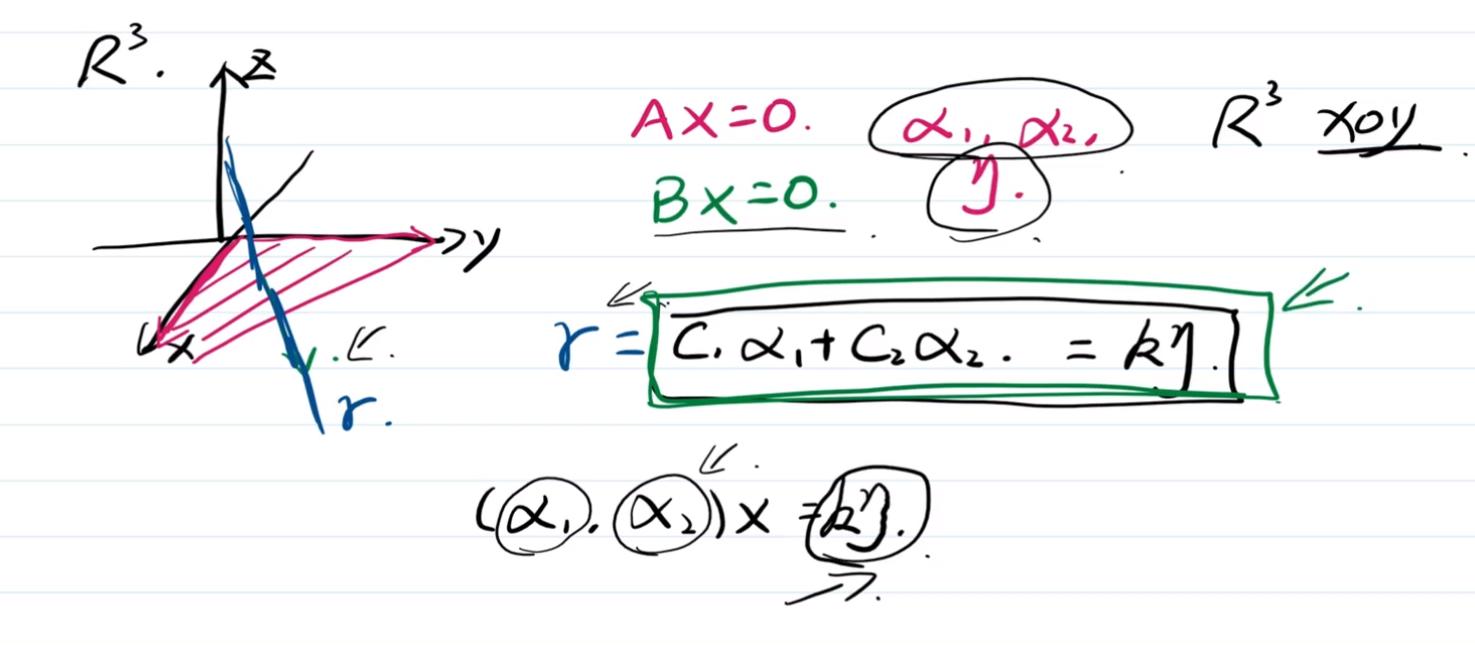 R³.
z
y
x
r.
AX=0. α₁, α₂, R³ xoy.
η.
BX=0.
r = C₁α₁+C₂α₂. = kη.
(α₁. α₂)x = kη.